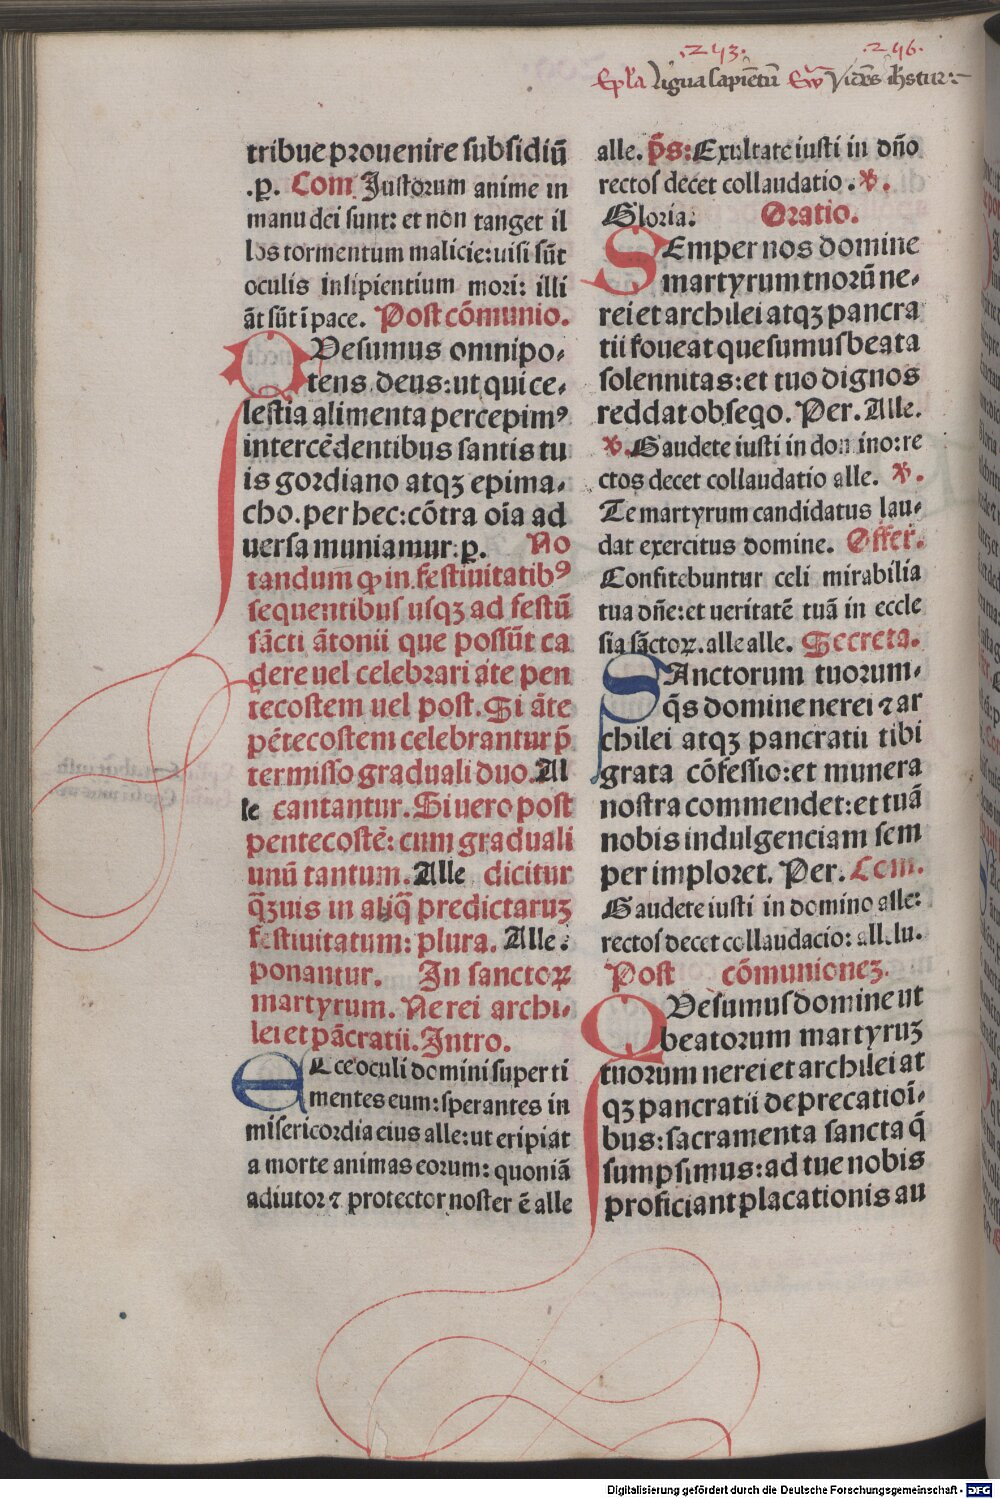 .243. .246.
Ep̄la ligua sapiētiū Ew̄ Vidēs ih̄s tur:~
tribue prouenire subsidiū
.p̱. Com Justorum anime in
manu dei sunt: et non tanget il
los tormentum malicie: uisi sūt
oculis insipientium mori: illi
āt sūt ī pace. Post cōmunio.
QVesumus omnipo-
tens deus: ut qui ce-
lestia alimenta percepimꝰ
intercēdentibus santis tu
is gordiano atqꝫ epima-
cho. per hec: cōtra oīa ad
uersa muniamur: p̱. No
tandum ꝙ in festiuitatibꝰ
sequentibus usqꝫ ad festū
sācti ātonii que possūt ca
dere uel celebrari āte pen
tecostem uel post. Si āte
pētecostem celebrantur p̄
termisso graduali duo. Al
le cantantur. Si uero post
pentecostē: cum graduali
unū tantum. Alle dicitur
q̄ꝫuis in aliq̄ predictaruꝫ
festiuitatum: plura. Alle:
ponantur. In sanctoꝝ
martyrum. Nerei archi-
lei et pācratii. Intro.
ECce oculi domini super ti
mentes eum: sperantes in
misericordia eius alle: ut eripiat
a morte animas eorum: quoniā
adiutor ⁊ protector noster ē alle
alle. p̄s: Exultate iusti in dn̄o
rectos decet collaudatio. ℟.
Gloria. Oratio.
SEmper nos domine
martyrum tuorū ne-
rei et archilei atqꝫ pancra
tii foueat quesumus beata
solennitas: et tuo dignos
reddat obseqo. Per. Alle.
℣. Gaudete iusti in domino: re
ctos decet collaudatio alle. ℣.
Te martyrum candidatus lau-
dat exercitus domine. Offer.
Confitebuntur celi mirabilia
tua dn̄e: et ueritatē tuā in eccle
sia sāctoꝝ. alle alle. Secreta.
SAnctorum tuorum-
q̄s domine nerei ⁊ ar
chilei atqꝫ pancratii tibi
grata cōfessio: et munera
nostra commendet: et tuā
nobis indulgenciam sem
per imploret. Per. Com.
Gaudete iusti in domino alle:
rectos decet collaudacio: allelu.
Post cōmunioneꝫ.
QVesumus domine ut
beatorum martyruꝫ
tuorum nerei et archilei at
qꝫ pancratii deprecatioī-
bus: sacramenta sancta q̄
sumpsimus: ad tue nobis
proficiant placationis au
Digitalisierung gefördert durch die Deutsche Forschungsgemeinschaft - DFG